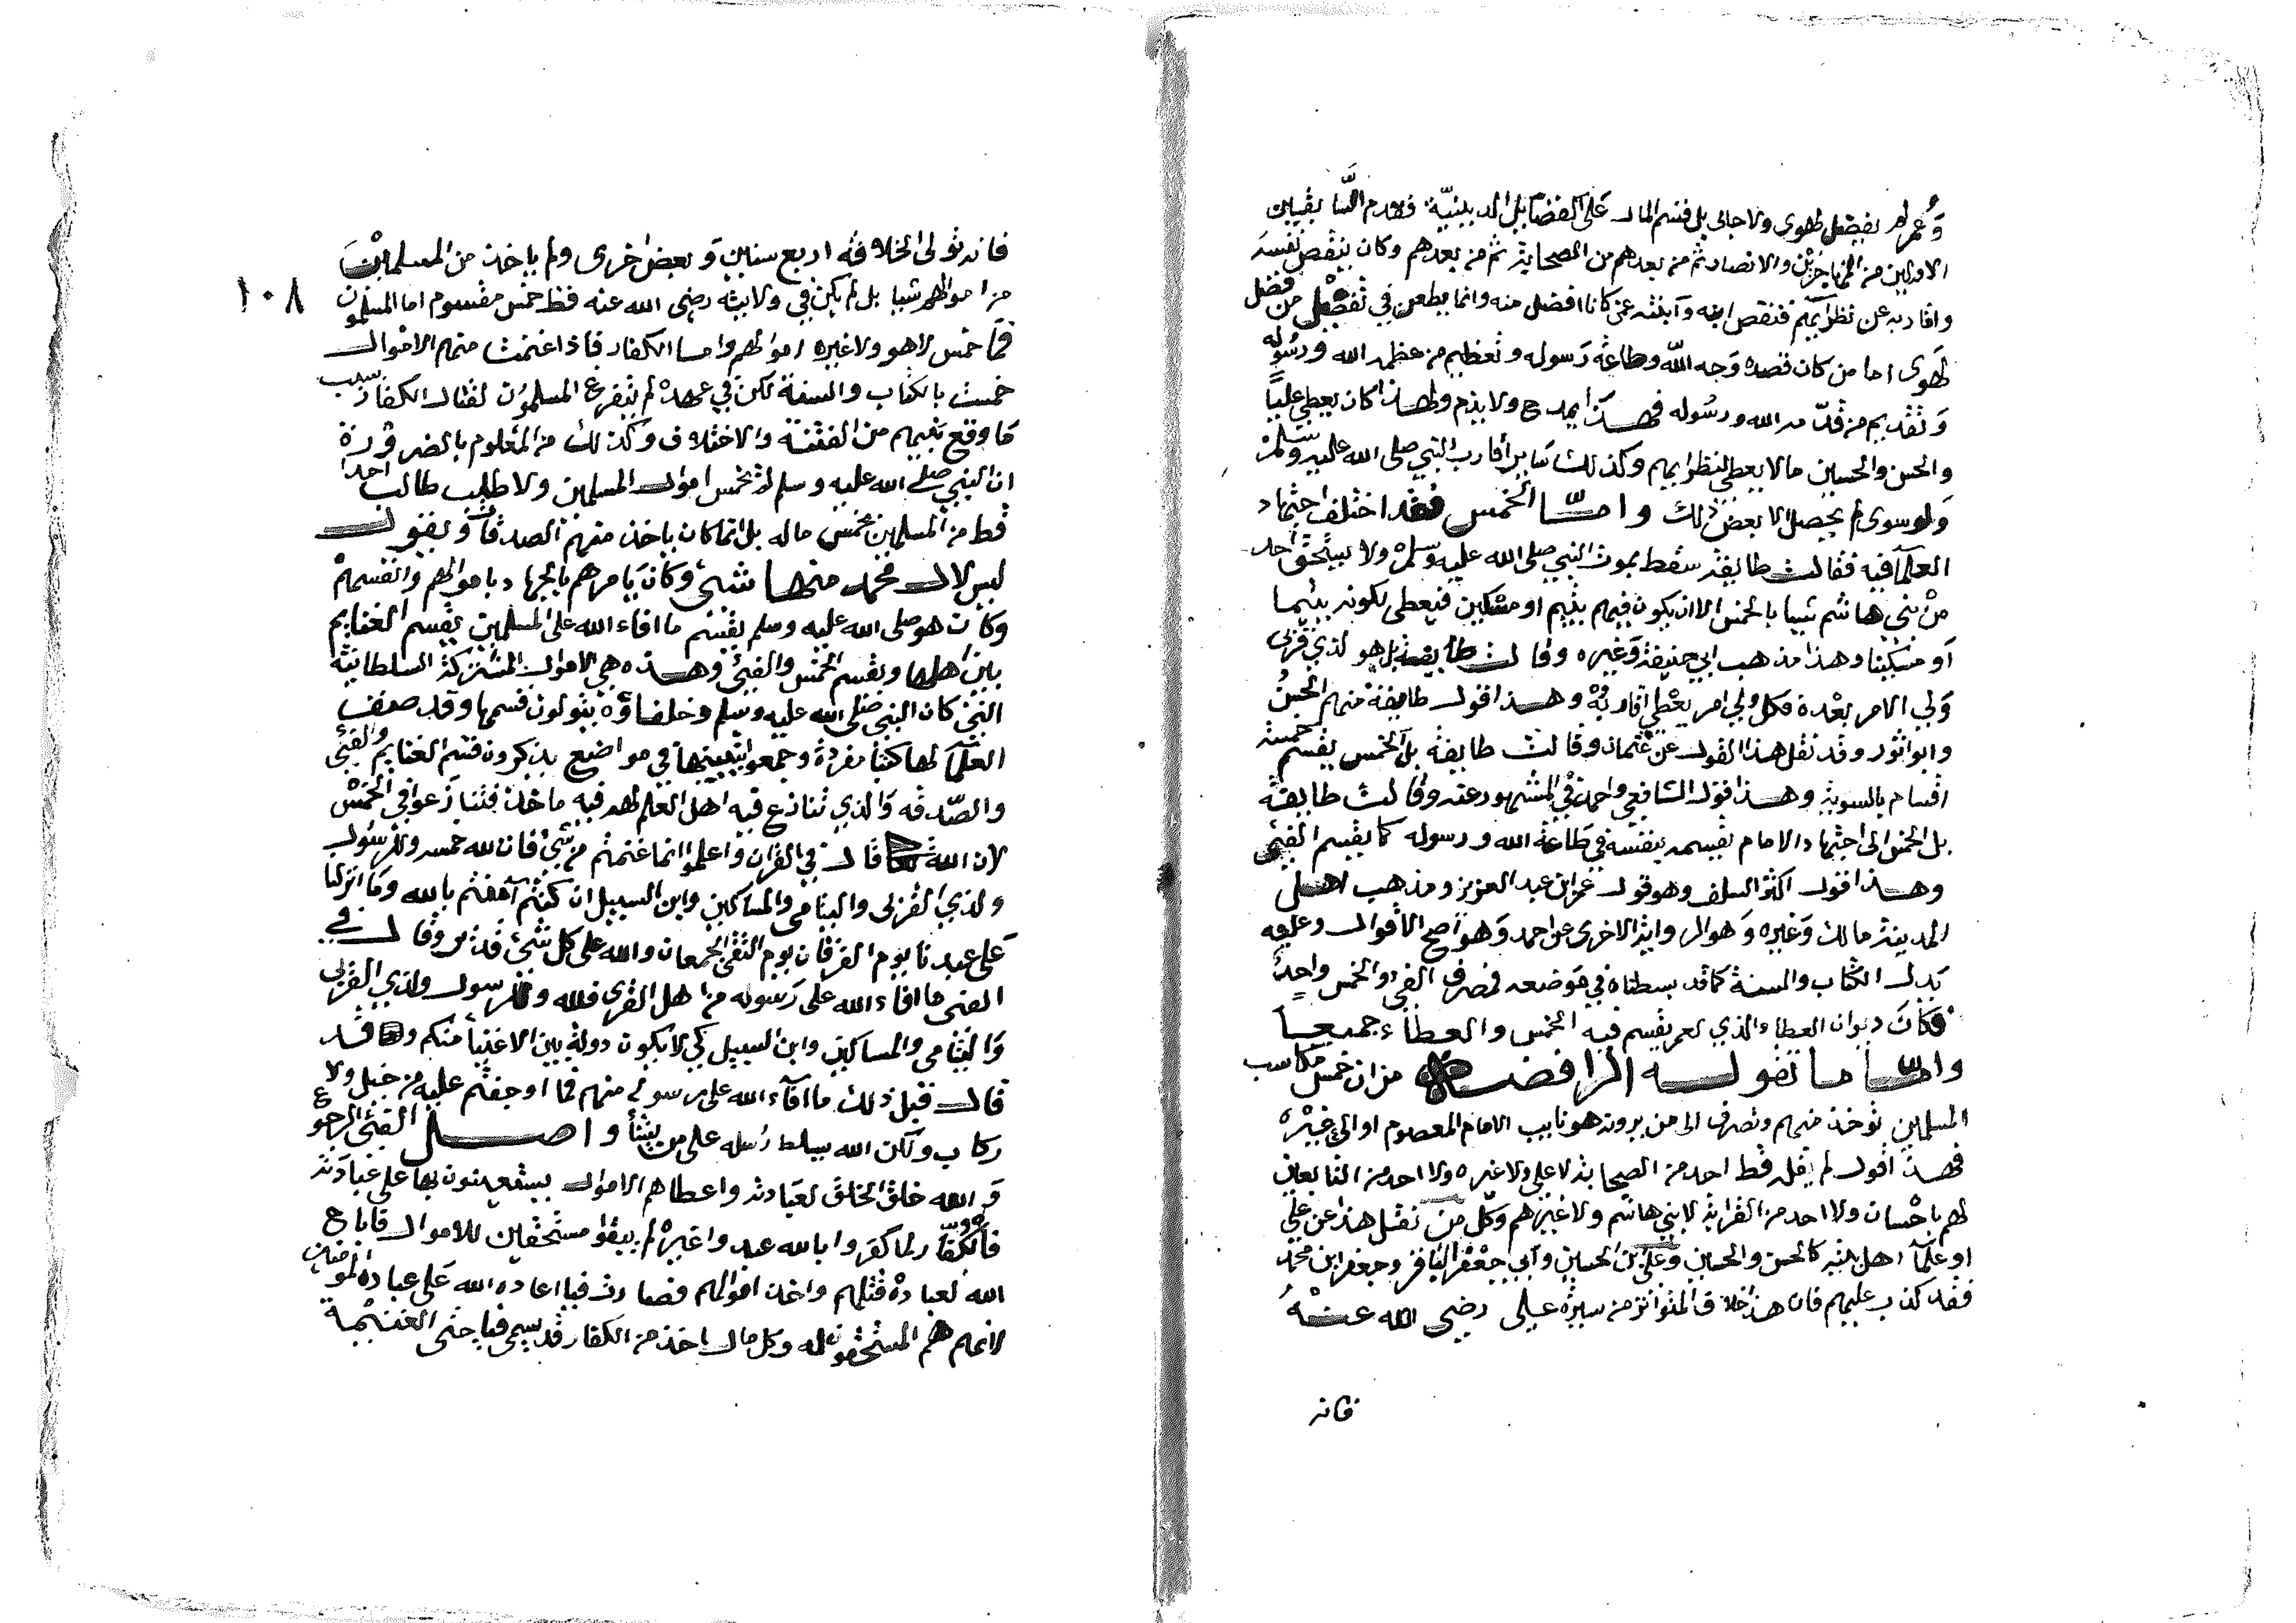 وعمر لم يفضل لهوى ولا حابى بل قسم المال على الفضايل الدينية فقدم السابقين
الاولين من المهاجرين والانصار ثم من بعدهم من الصحابة ثم من بعدهم وكان ينقص نفسه
واقاربه عن نظرايهم فنقص ابنه وابنته عن كانا افضل منه وانما يطعن في تفضيل من فضل
لهوى اما من كان قصده وجه الله وطاعة رسوله وتعظيم من عظمه الله ورسوله
وتقديم من قدمه الله ورسوله فهذا يمدح ولا يذم ولهذا كان يعطي عليا
والحسن والحسين مالا يعطي لنظرايهم وكذلك ساير أقارب النبي صلى الله عليه وسلم
ولو سوى لم يحصل الا بعض ذلك واما الخمس فقد اختلف اجتهاد
العلما فيه فقالت طايفة سقط بموت النبي صلى الله عليه وسلم ولا يستحق احد
من بني هاشم شيا بالخمس الا ان يكون فيهم يتيم او مسكين فيعطى لكونه يتيما
أو مسكينا وهذا مذهب ابي حنيفة وغيره وقالت طايفة بل هو لذي قربى
ولي الامر بعده فكل ولي امر يعطي اقاربه وهذا قول طايفة منهم الحسن
وابو اثور وقد نقل هذا القول عن عثمان وقالت طايفة بل الخمس يقسم خمسة
اقسام بالسوية وهذا قول الشافعي واحمد في المشهور عنه وقالت طايفة
بل الخمس الى اجتهاد الامام يقسمه بنفسه في طاعة الله ورسوله كما يقسم الفيء
وهذا قول اكثر السلف وهو قول عمر ابن عبد العزيز ومذهب اهل
المدينة مالك وغيره وهو الرواية الاخرى عن احمد وهو أصح الاقوال وعليه
يدل الكتاب والسنة كما قد بسطناه في موضعه فمصرف الفيء والخمس واحد
فكان ديوان العطاء الذي لعمر يقسم فيه الخمس والعطاء جميعا
واما ما تقوله الرافضة من ان خمس مكاسب
المسلمين توخذ منهم وتصرف الى من يرونه هو نايب الامام المعصوم او الى غيره
فهذا قول لم يقله قط احد من الصحابة لا علي ولا غيره ولا احد من التابعين
لهم باحسان ولا احد من القرابة لا بني هاشم ولا غيرهم وكل من نقل هذا عن علي
او علما اهل بيته كالحسن والحسين وعلي بن الحسين وأبي جعفر الباقر وجعفر ابن محمد
فقد كذب عليهم فان هذا خلاف المتواتر من سيرة علي رضي الله عنه
فانه
فانه تولى الخلافة اربع سنين وبعض اخرى ولم ياخذ من المسلمين
من اموالهم شيا بل لم يكن في ولايته رضي الله عنه قط خمس مقسوم اما المسلمون
١٠٨
فما خمس لا هو ولا غيره اموالهم واما الكفار فاذا غنمت منهم الاموال
خمست بالكتاب والسنة لكن في عهده لم يتفرغ المسلمون لقتال الكفار بسبب
ما وقع بينهم من الفتنة والاختلاف وكذلك من المعلوم بالضرورة
ان النبي صلى الله عليه وسلم لم يخمس اموال المسلمين ولا طالب احدا
قط من المسلمين بخمس ماله بل انما كان ياخذ منهم الصدقات ويقول
ليس لال محمد منها شيء وكان يامرهم بالجهاد باموالهم وانفسهم
وكان هو صلى الله عليه وسلم يقسم ما افاء الله على المسلمين يقسم الغنايم
بين اهلها ويقسم الخمس والفيء وهذه هي الاموال المشتركة السلطانية
التي كان النبي صلى الله عليه وسلم وخلفاؤه يتولون قسمها وقد صنف
العلما لها كتبا مفردة وجمعوا بينها في مواضيع يذكرون قسم الغنايم والفيء
والصدقه والذي تنازع فيه اهل العلم لهم فيه ماخذ فتنازعوا في الخمس
لان الله قال في القران واعلموا انما غنمتم من شيء فان لله خمسه وللرسول
ولذي القربى واليتامى والمساكين وابن السبيل ان كنتم آمنتم بالله وما انزلنا
على عبدنا يوم الفرقان يوم التقى الجمعان والله على كل شيء قدير وقال في
الفيء ما افاء الله على رسوله من اهل القرى فلله وللرسول ولذي القربى
واليتامى والمساكين وابن السبيل كي لا يكون دولة بين الاغنيا منكم وقد
قال قبل ذلك ما افاء الله على رسوله منهم فما اوجفتم عليه من خيل ولا
ركاب ولكن الله يسلط رسله على من يشأ واصل الفيء الرجوع
والله خلق الخلق لعبادته واعطاهم الاموال يستعينون بها على عبادته
فالكفار لما كفروا بالله وعبدوا غيره لم يبقوا مستحقين للاموال فاباح
الله لعباده قتلهم واخذ اموالهم فصارت فيا اعاده الله على عباده المومنين
لانهم هم المستحقون له وكل مال اخذ من الكفار قد يسمى فيا حتى الغنيمة